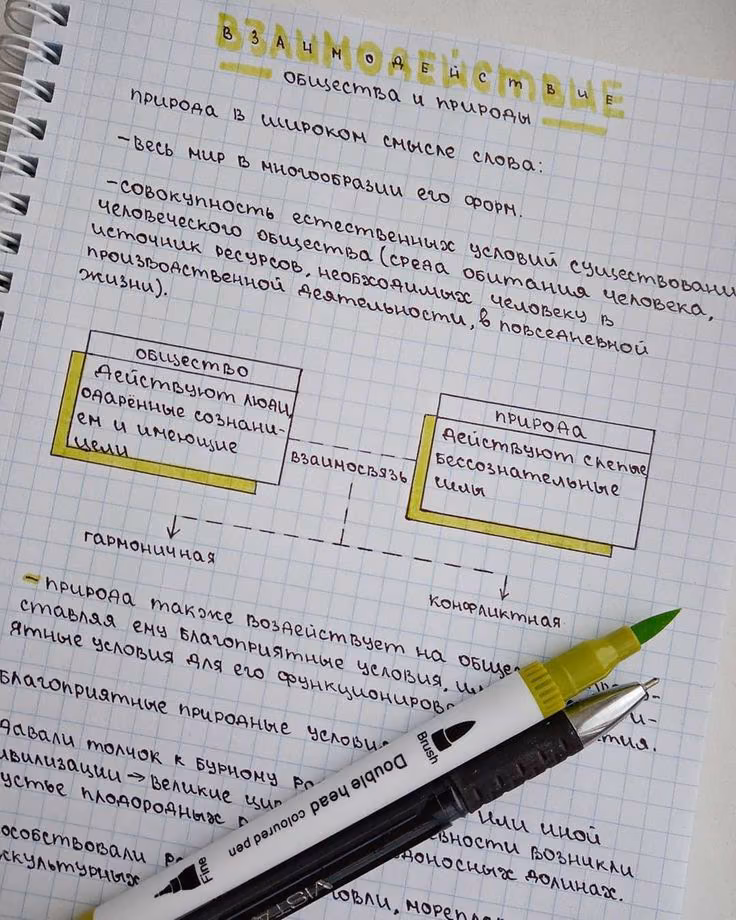 ВЗАИМОДЕЙСТВИЕ
ОБЩЕСТВА И ПРИРОДЫ
ПРИРОДА В ШИРОКОМ СМЫСЛЕ СЛОВА:
-ВЕСЬ МИР В МНОГООБРАЗИИ ЕГО ФОРМ.
-СОВОКУПНОСТЬ ЕСТЕСТВЕННЫХ УСЛОВИЙ СУЩЕСТВОВАНИ
ЧЕЛОВЕЧЕСКОГО ОБЩЕСТВА (СРЕДА ОБИТАНИЯ ЧЕЛОВЕКА,
ИСТОЧНИК РЕСУРСОВ, НЕОБХОДИМЫХ ЧЕЛОВЕКУ В
ПРОИЗВОДСТВЕННОЙ ДЕЯТЕЛЬНОСТИ, В ПОВСЕДНЕВНОЙ
ЖИЗНИ).
ОБЩЕСТВО
ДЕЙСТВУЮТ ЛЮДИ,
ОДАРЁННЫЕ СОЗНАНИ-
ЕМ И ИМЕЮЩИЕ
ЦЕЛИ
ВЗАИМОСВЯЗЬ
ПРИРОДА
ДЕЙСТВУЮТ СЛЕПЫЕ
БЕССОЗНАТЕЛЬНЫЕ
СИЛЫ
ГАРМОНИЧНАЯ
КОНФЛИКТНАЯ
- ПРИРОДА ТАКЖЕ ВОЗДЕЙСТВУЕТ НА ОБЩЕ
СТАВЛЯЯ ЕМУ БЛАГОПРИЯТНЫЕ УСЛОВИЯ,
ЯТНЫЕ УСЛОВИЯ ДЛЯ ЕГО ФУНКЦИОНИРОВА
БЛАГОПРИЯТНЫЕ ПРИРОДНЫЕ УСЛОВИ
ДАВАЛИ ТОЛЧОК К БУРНОМУ ИЛИ ИНОЙ
ИВИЛИЗАЦИИ → ВЕЛИКИЕ ЦИ ВНОСТИ ВОЗНИКЛИ
УСТЬЕ ПЛОДОРОДНЫХ ДОНОСНЫХ ДОЛИНАХ.
ОСОБСТВОВАЛИ
СКУЛЬТУРНЫХ ОВЛИ, МОРЕПЛА
Brush
Double head coloured pen
Fine
VISTA